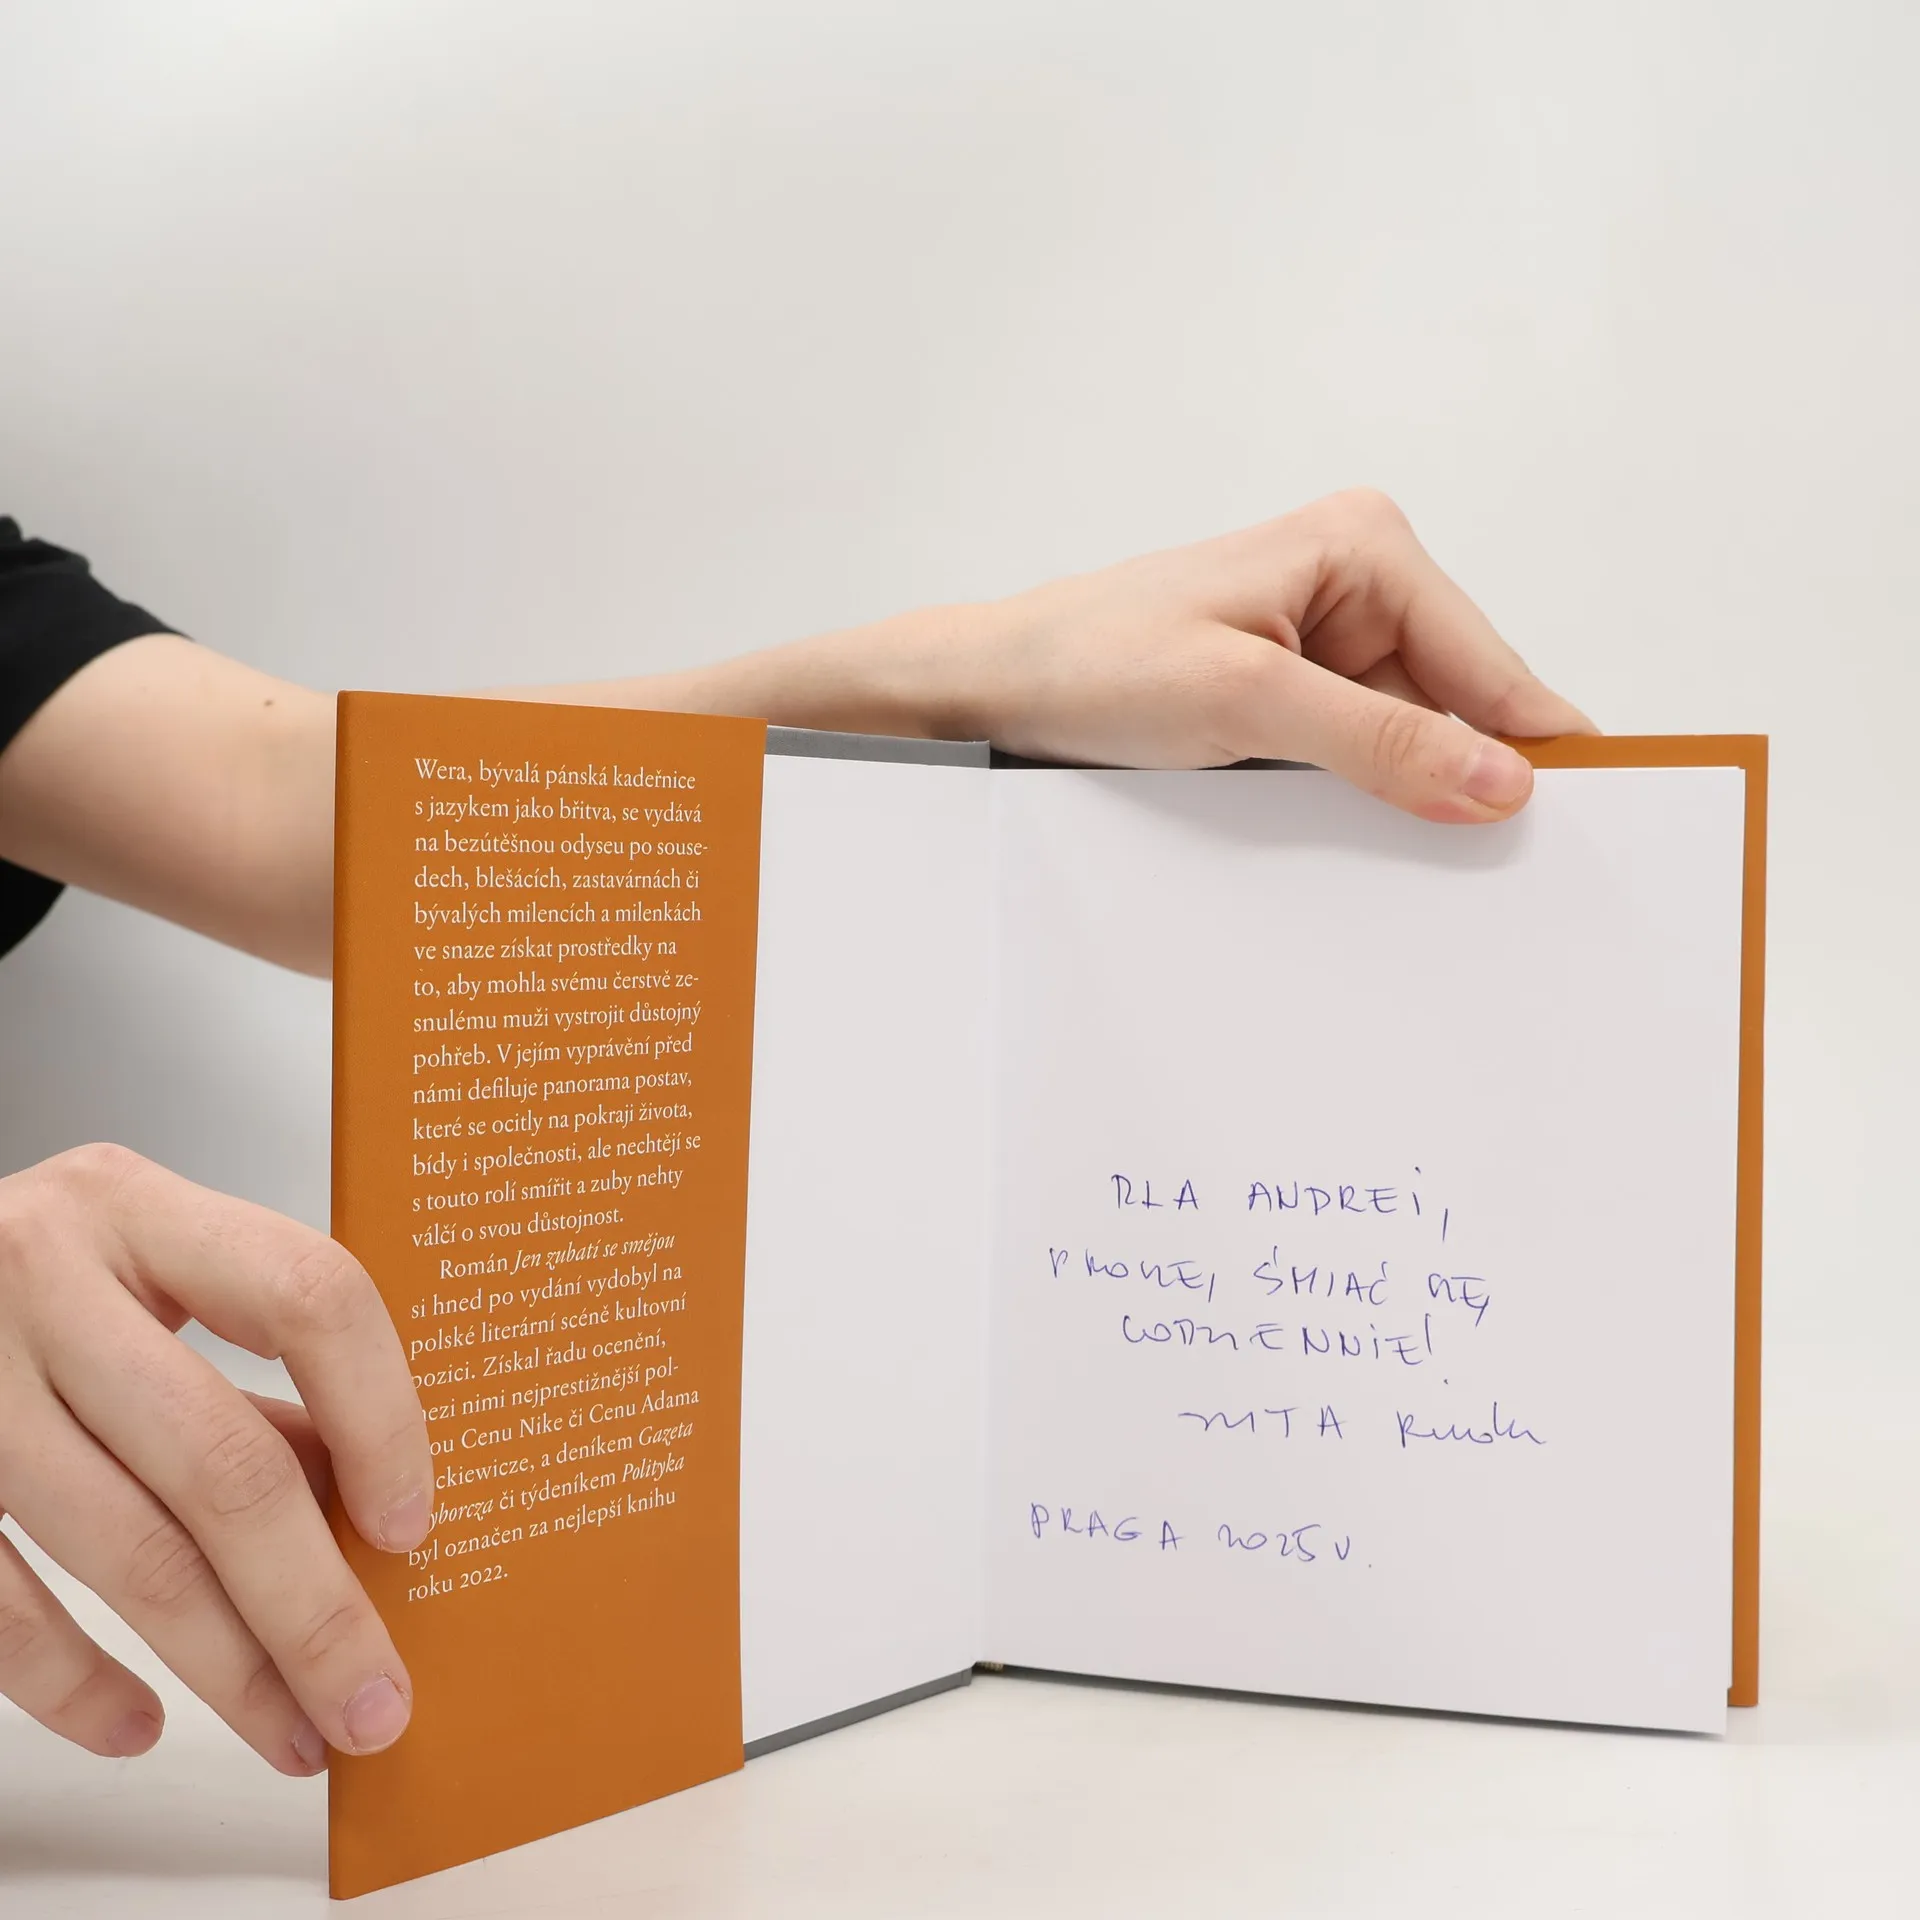 Wera, bývalá pánská kadeřnice
s jazykem jako břitva, se vydává
na bezútěšnou odyseu po souse-
dech, blešácích, zastavárnách či
bývalých milencích a milenkách
ve snaze získat prostředky na
to, aby mohla svému čerstvě ze-
snulému muži vystrojit důstojný
pohřeb. V jejím vyprávění před
námi defiluje panorama postav,
které se ocitly na pokraji života,
bídy i společnosti, ale nechtějí se
s touto rolí smířit a zuby nehty
válčí o svou důstojnost.
Román Jen zubatí se smějou
si hned po vydání vydobyl na
polské literární scéně kultovní
pozici. Získal řadu ocenění,
nimi nejprestižnější pol-
Cenu Nike či Cenu Adama
a deníkem Gazeta
či týdeníkem Polityka
byl označen za nejlepší knihu
roku 2022.
DLA ANDREI,
PROSZĘ, ŚMIAĆ SIĘ
CODZIENNIE!
PRAGA 2025